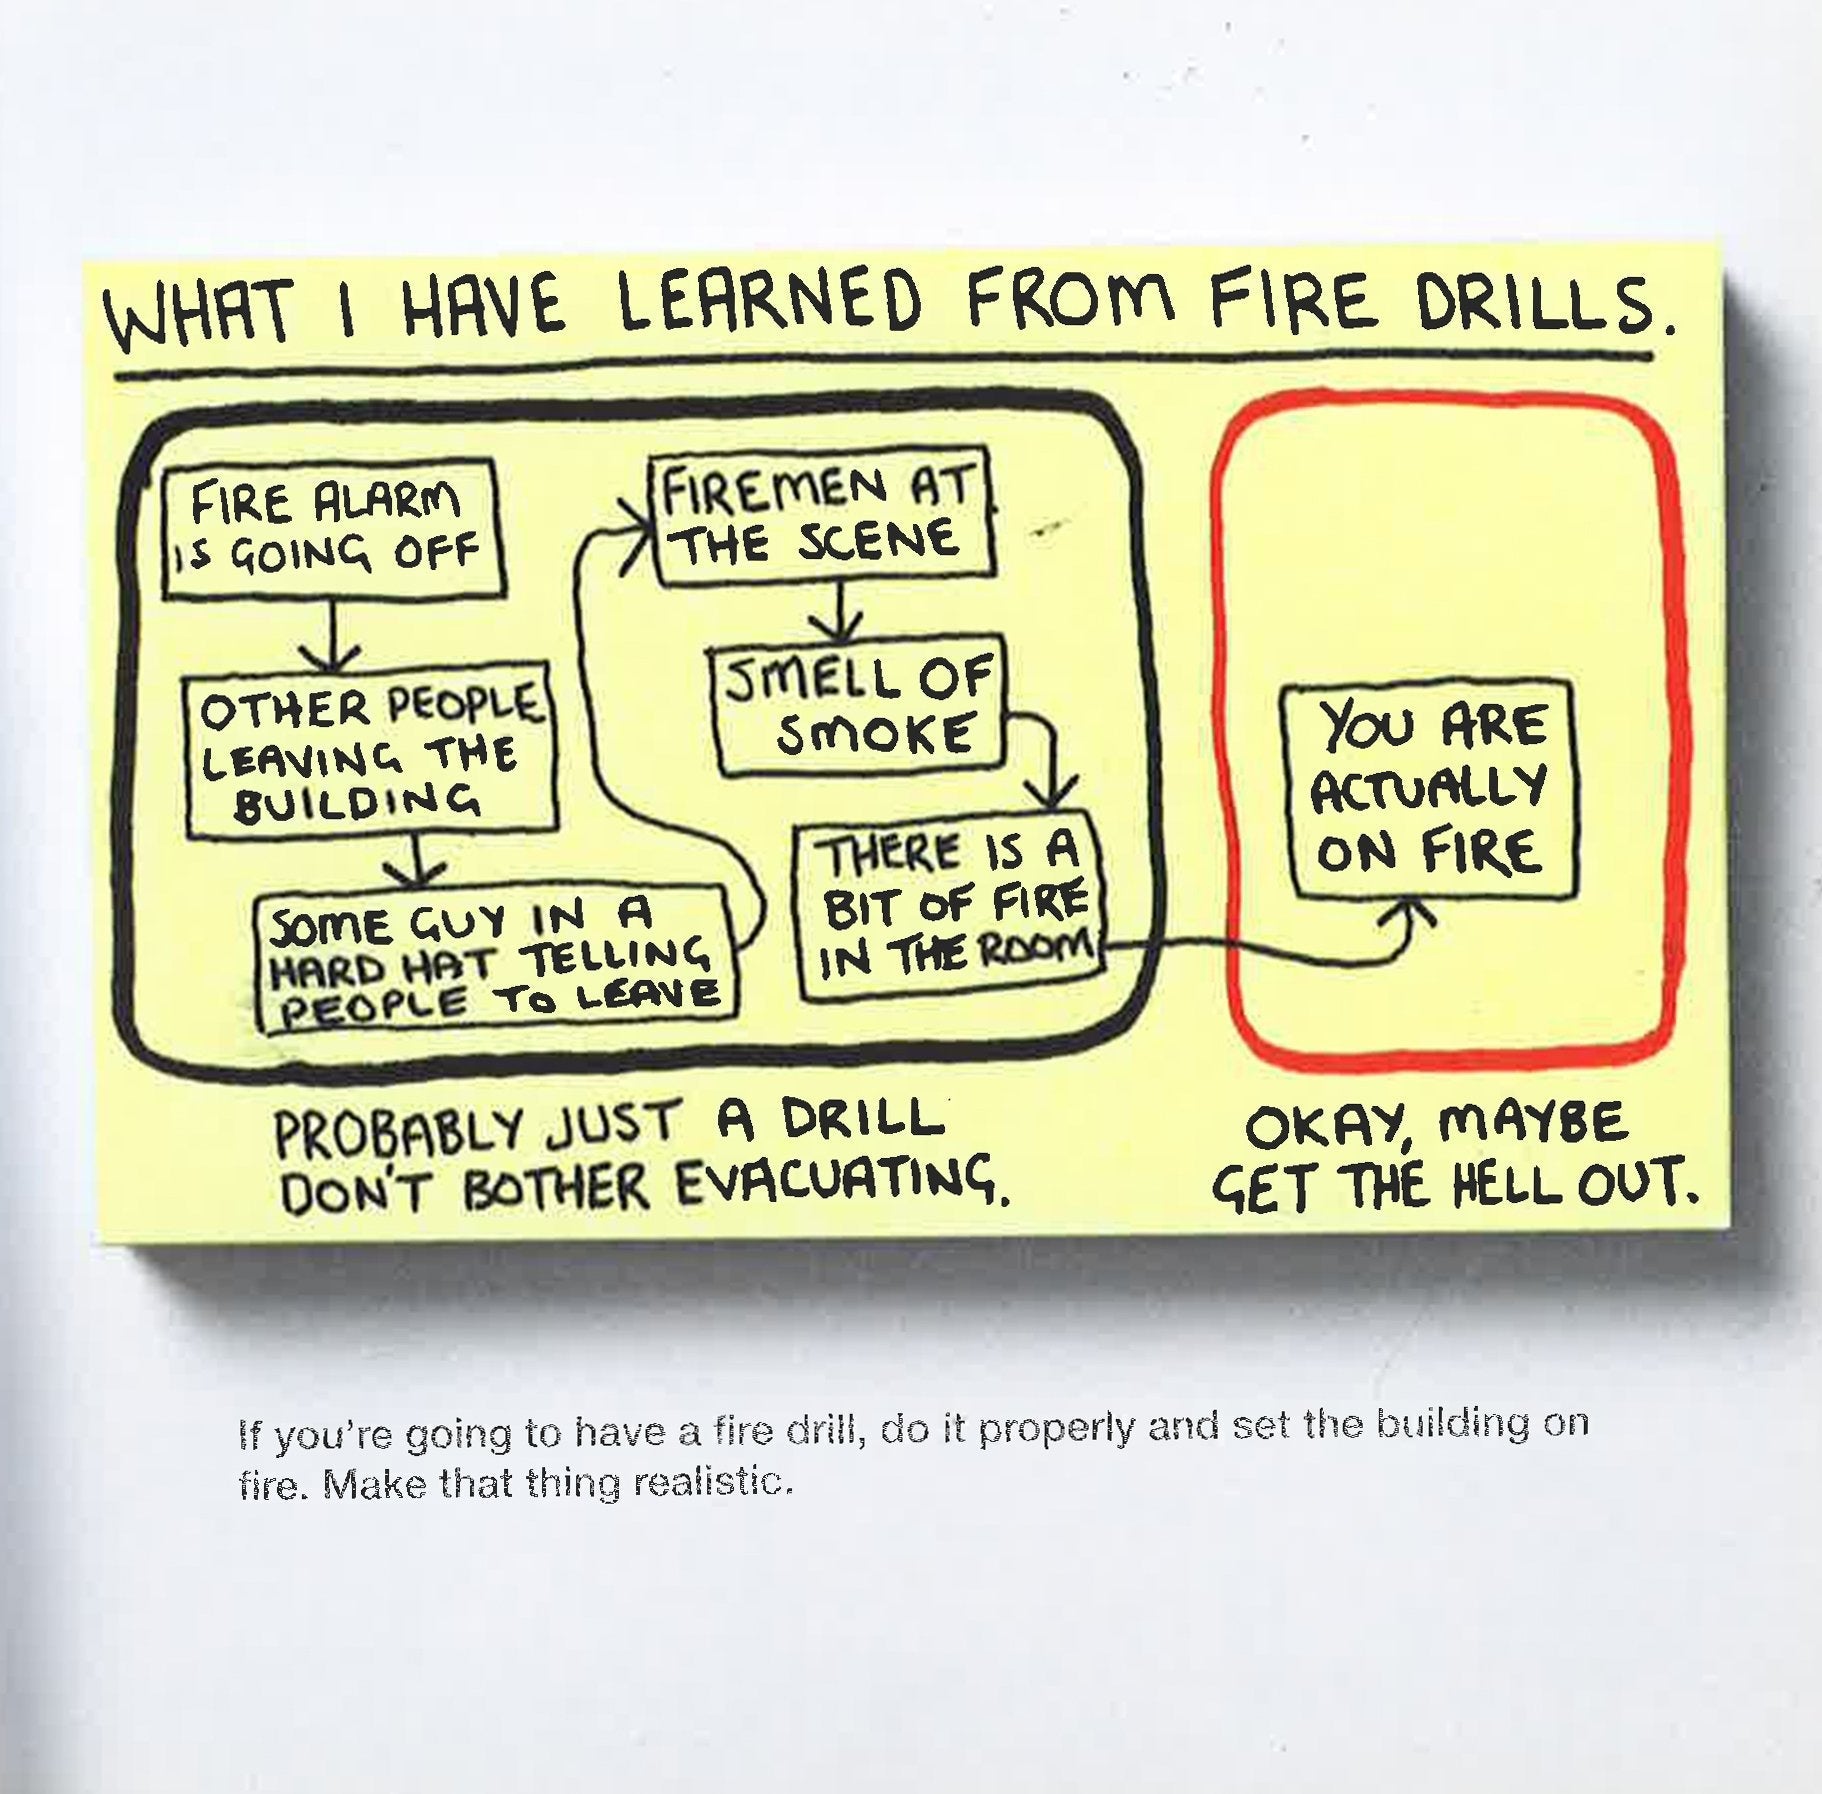 WHAT I HAVE LEARNED FROM FIRE DRILLS.
FIRE ALARM
IS GOING OFF
OTHER PEOPLE
LEAVING THE
BUILDING
SOME GUY IN A
HARD HAT TELLING
PEOPLE TO LEAVE
FIREMEN AT
THE SCENE
SMELL OF
SMOKE
THERE IS A
BIT OF FIRE
IN THE ROOM
YOU ARE
ACTUALLY
ON FIRE
PROBABLY JUST A DRILL
DON'T BOTHER EVACUATING.
OKAY, MAYBE
GET THE HELL OUT.
If you're going to have a fire drill, do it properly and set the building on
fire. Make that thing realistic.